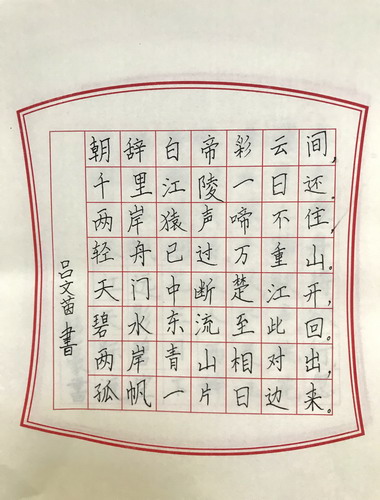 朝辞白帝彩云间，
千里江陵一日还。
两岸猿声啼不住，
轻舟已过万重山。
天门中断楚江开，
碧水东流至此回。
两岸青山相对出，
孤帆一片日边来。
吕文茵书